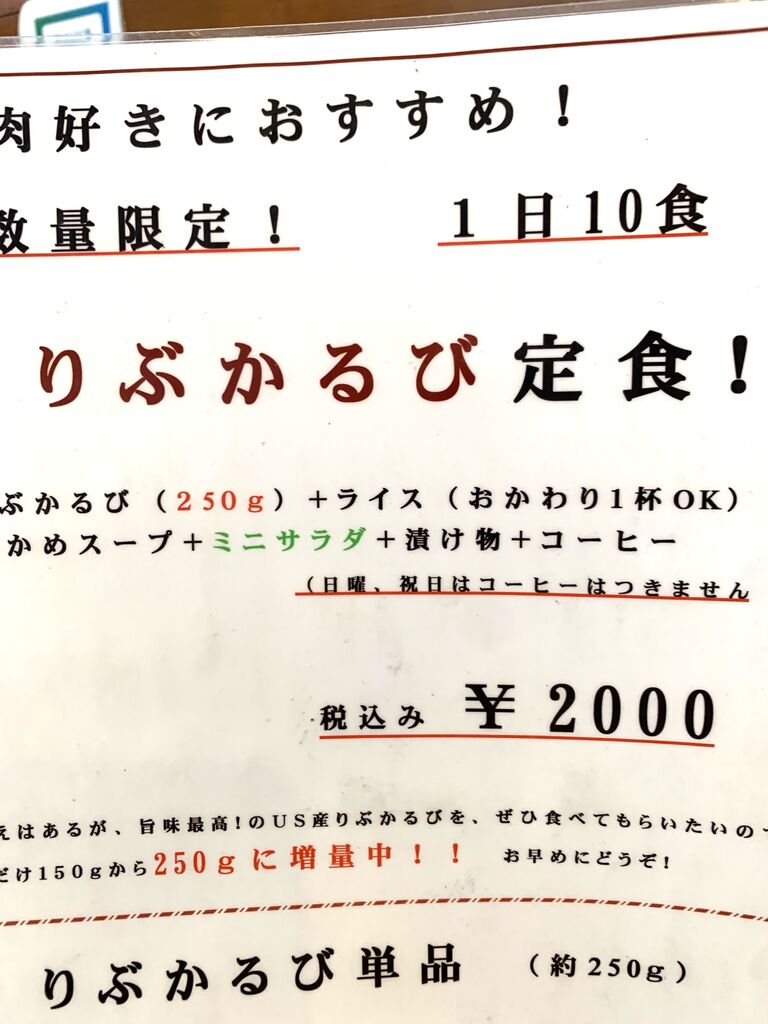 肉好きにおすすめ！
数量限定！ 1日10食
りぶかるび定食！
ぶかるび（250g）＋ライス（おかわり1杯OK）
かめスープ＋ミニサラダ＋漬け物＋コーヒー
（日曜、祝日はコーヒーはつきません
税込み ￥2000
えはあるが、旨味最高！のUS産りぶかるびを、ぜひ食べてもらいたいの
だけ150gから250gに増量中！！ お早めにどうぞ！
りぶかるび単品 （約250g）